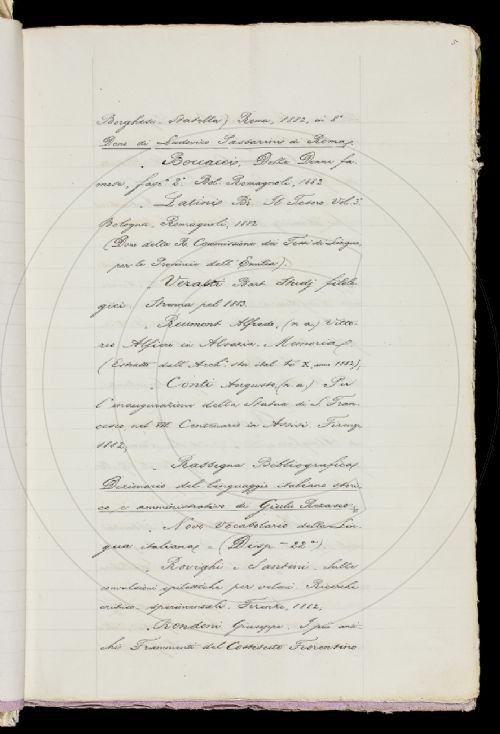 5
Borghesi - Statella) Roma, 1882, in 8º
Dono di Ludovico Passarini di Roma,
. Boccacci, Delle Donne fa
mose, fasc. 2º Bol. Romagnoli, 1882
. Latinis Br. Il Tesoro Vol. 3º
Bologna, Romagnoli, 1882
(Dono della R. Commissione dei Testi di Lingua,
per le Provincie dell'Emilia).
. Veratti Bart. Studj filolo
gici. Strenna pel 1883.
. Reumont Alfredo, (n a) Vitto-
rio Alfieri in Alsazia. Memoria
(Estratto dall'Arch. sto ital. to X, anno 1882),
. Conti Augusto (n a) Per
l'inaugurazione della Statua di S. Fran-
cesco nel VII Centenario in Assisi. Firenze
1882,
. Rassegna Bibliografica
Dizionario del linguaggio italiano stori
co e amministrativo di Giulio Rezasco,
. Novo Vocabolario della Lin
gua italiana = (Disp - 22ª)
. Rovighi e Santini. Sulle
convulsioni epilettiche per veleni. Ricerche
critico - sperimentali. Firenze, 1882,
. Rondoni Giuseppe. I più anti
chi Frammenti del Costituto Fiorentino